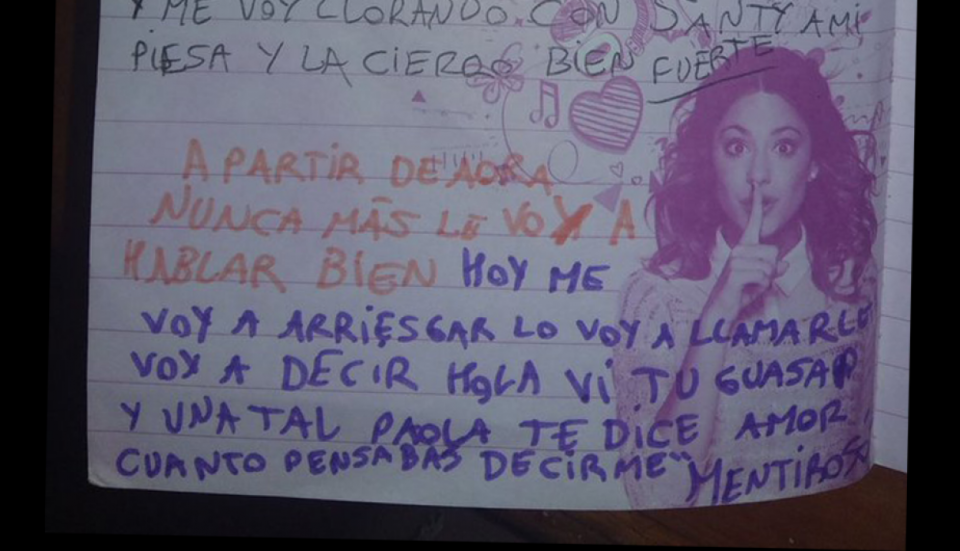 Y ME VOY LLORANDO. CON SANTY A MI
PIESA Y LA CIERRO BIEN FUERTE
A PARTIR DE AORA
NUNCA MÁS LE VOY A
HABLAR BIEN HOY ME
VOY A ARRIESGAR LO VOY A LLAMAR LE
VOY A DECIR HOLA VI TU GUASAP
Y UNA TAL PAOLA TE DICE AMOR
CUANTO PENSABAS DECIRME" MENTIROSO